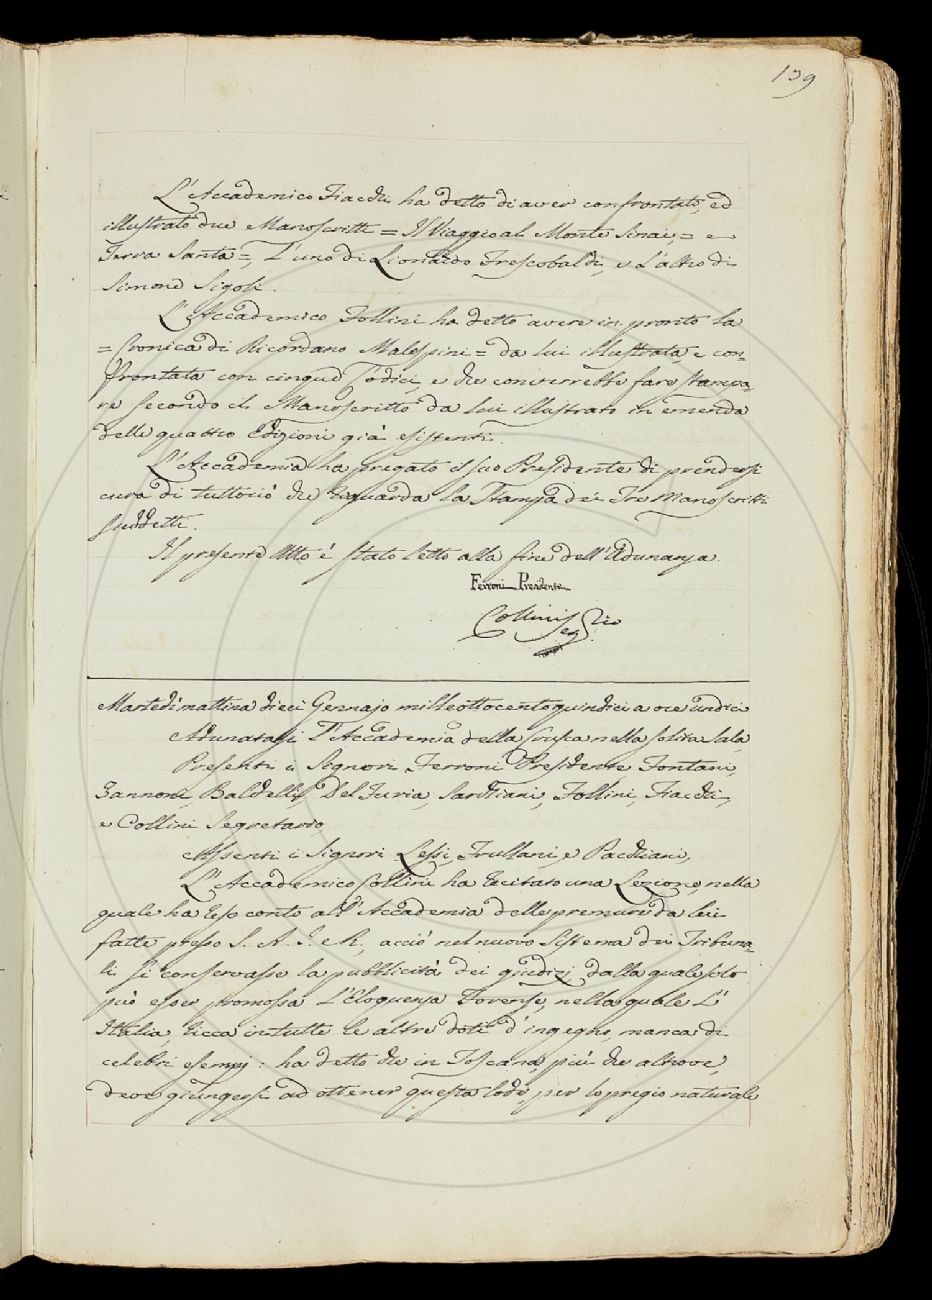 139
L'Accademico Fiacchi ha detto di aver confrontato, ed
illustrato due Manoscritti = Il Viaggio al Monte Sinai, = e
Terra Santa =, L'uno di Lionardo Frescobaldi, e L'altro di
Simone Sigoli.
L'Accademico Follini ha detto avere in pronto la
= Cronica di Ricordano Malespini = da lui illustrata e con-
frontata con cinque Codici, e che converrebbe fare stampa-
re secondo il Manoscritto da lui illustrato in emenda
delle quattro Edizioni già esistenti.
L'Accademia ha pregato il suo Presidente di prendersi
cura di tuttociò che riguarda la Stampa dei Tre Manoscritti
suddetti.
Il presente Atto è stato letto alla fine dell'Adunanza.
Ferroni Presidente
Collini Seg.rio
Martedì mattina dieci Gennajo milleottocentoquindici a ore undici
Adunatasi l'Accademia della Crusca nella solita Sala
Presenti i Signori Ferroni Presidente Fontani,
Zannoni, Baldelli, Del Furia, Sarchiani, Follini, Fiacchi,
e Collini Segretario
Assenti i Signori Lessi, Frullani, e Pacchiani,
L'Accademico Collini ha recitato una Lezione, nella
quale ha reso conto all'Accademia delle premure da lui
fatte presso S. A. I. e R., acciò nel nuovo Sistema dei Tribuna-
li si conservasse la pubblicità dei giudizj, dalla quale solo
può esser promossa L'Eloquenza Forense, nella quale L'
Italia, ricca in tutte le altre doti d'ingegno, manca di
celebri esempj: ha detto che in Toscana, più che altrove,
deve giungersi ad ottener questa lode, per lo pregio naturale